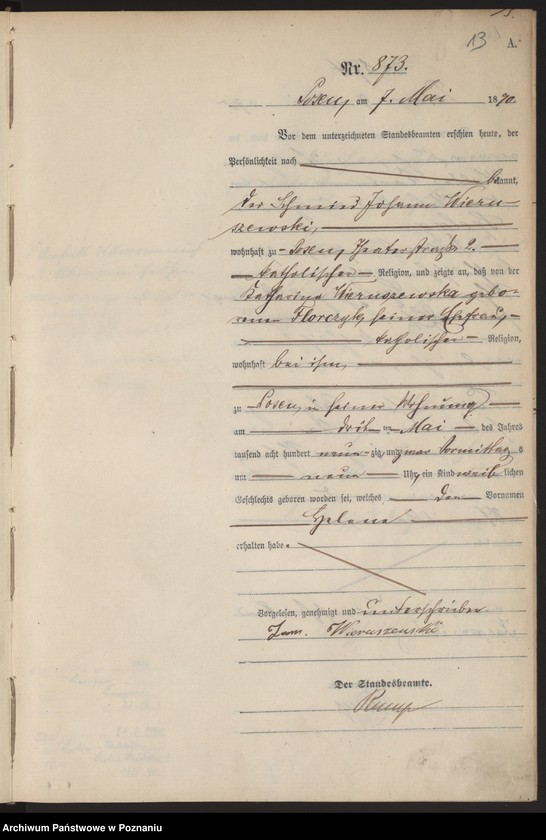 13 A.
Nr. 873.
Posen, am 7. Mai 1890.
Vor dem unterzeichneten Standesbeamten erschien heute, der
Persönlichkeit nach
bekannt,
der Schmied Johann Wieru-
szewski,
wohnhaft zu Posen, Theaterstraße 2.
katholischer Religion, und zeigte an, daß von der
Katharina Wieruszewska gebo-
renen Florczyk, seiner Ehefrau,
katholischer Religion,
wohnhaft bei ihm,
zu Posen, in seiner Wohnung
am dritten Mai des Jahres
tausend acht hundert neunzig und zwar Vormittags
um neun Uhr, ein Kind weiblichen
Geschlechts geboren worden sei, welches den Vornamen
Helena
erhalten habe.
Vorgelesen, genehmigt und unterschrieben
Wieruszewski
Der Standesbeamte.
Archiwum Państwowe w Poznaniu